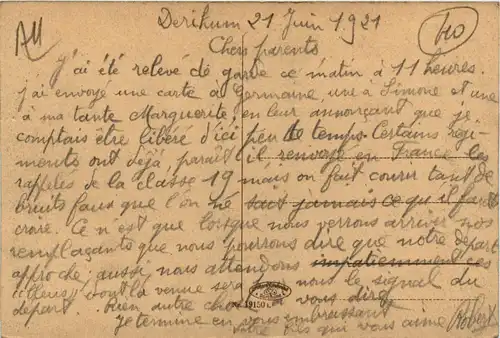 Derikum 21 Juin 1921
Chers parents
J'ai été relevé de garde ce matin à 11 heures.
J'ai envoyé une carte à Germaine, une à Simone et une
à ma tante Marguerite, en leur annonçant que je
comptais être libéré d'ici peu de temps. Certains régi-
ments ont déjà, paraît il renvoyé en France les
rappelés de la classe 19 mais on fait courir tant de
bruits faux que l'on ne sait jamais ce qu'il faut
croire. Ce n'est que lorsque nous verrons arriver nos
remplaçants que nous pourrons dire que notre départ
approche; aussi nous attendons impatiemment ces
dont la venue sera nous le signal du
départ bien autre chose vous dire
Je termine en vous embrassant
Votre fils qui vous aime Robert